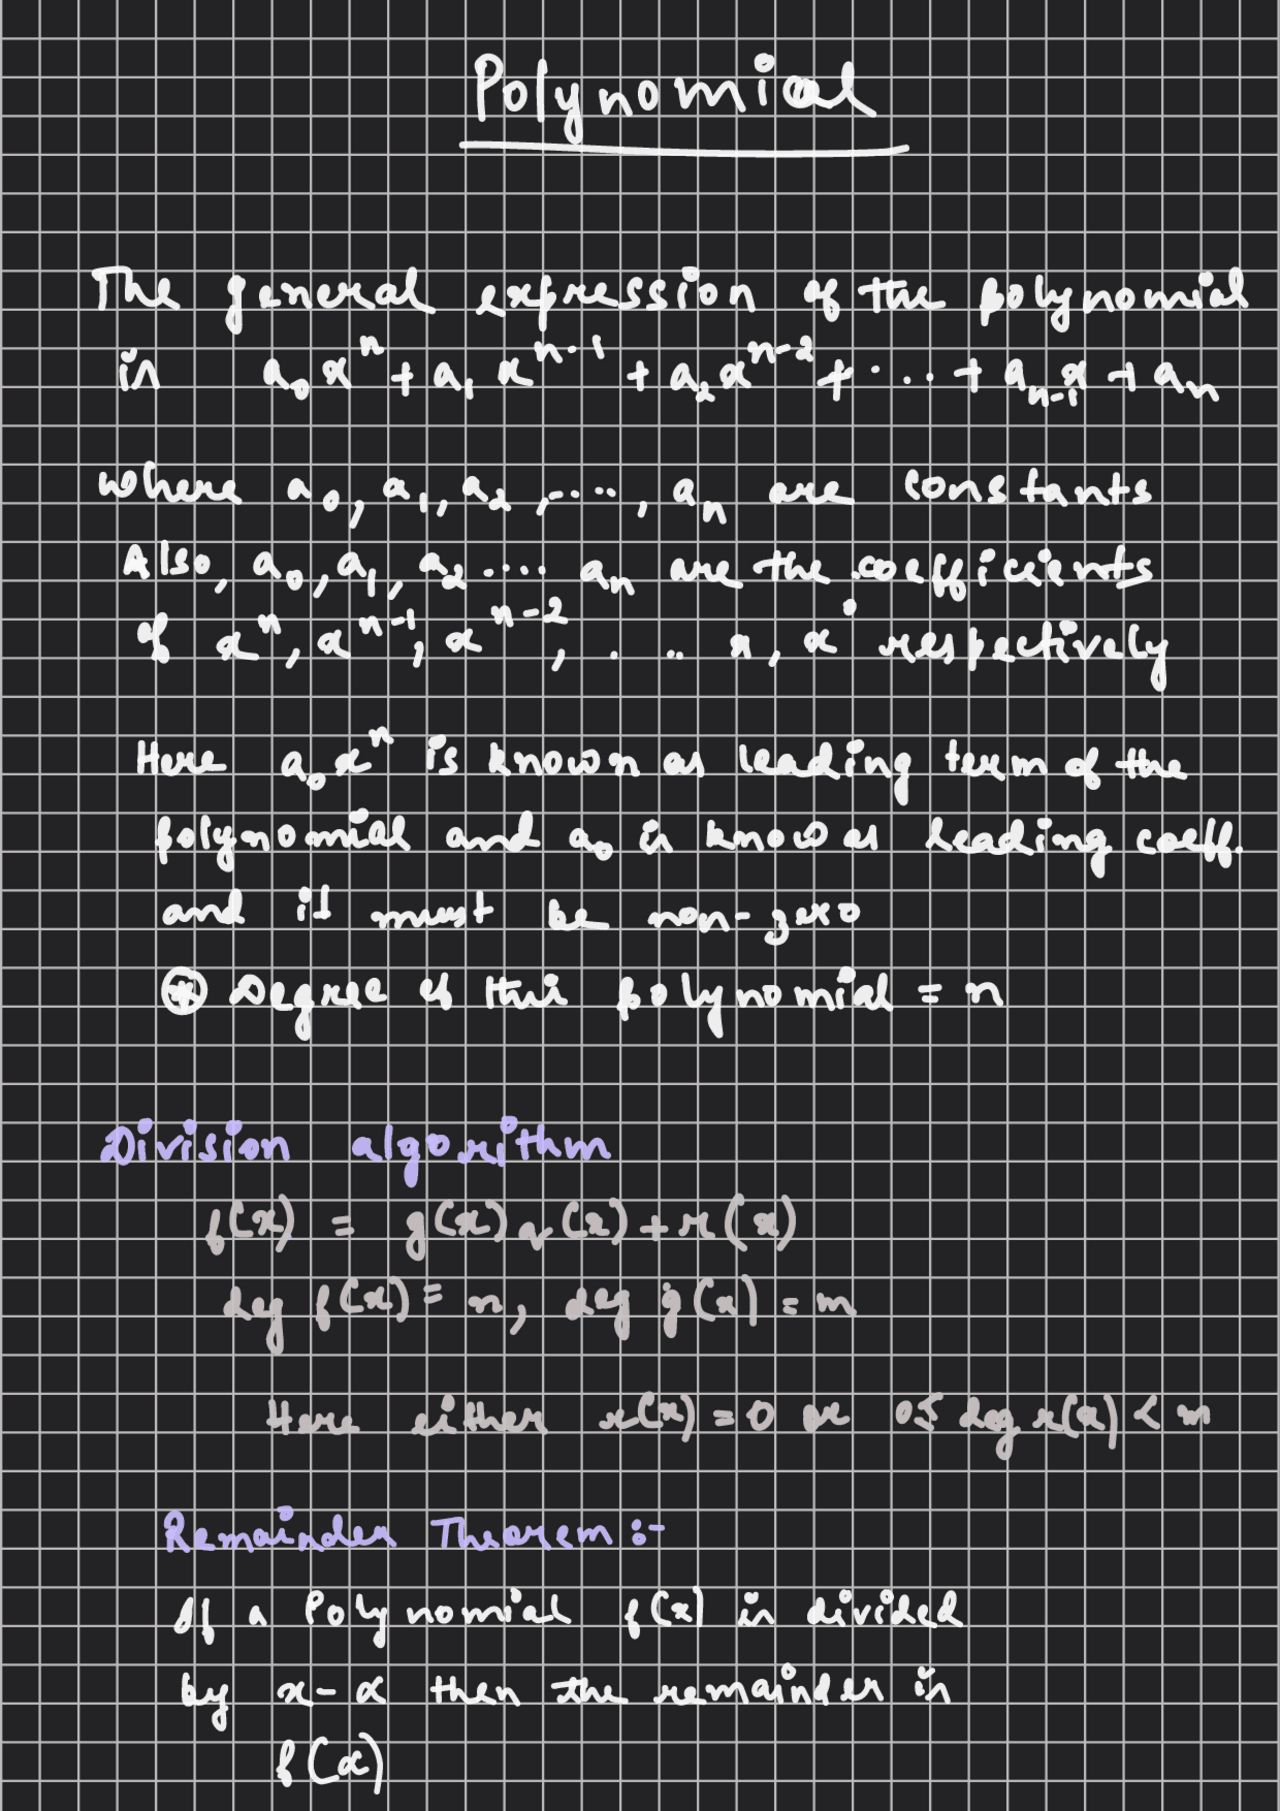 Polynomial
The general expression of the polynomial
is a₀xⁿ + a₁xⁿ⁻¹ + a₂xⁿ⁻² + ..... + aₙ₋₁x + aₙ
where a₀, a₁, a₂, ....., aₙ are constants
Also, a₀, a₁, a₂ .... aₙ are the coefficients
of xⁿ, xⁿ⁻¹, xⁿ⁻², . .. x, x° respectively
Here a₀xⁿ is known as leading term of the
polynomial and a₀ is know as leading coeff.
and it must be non-zero
⊛ Degree of this polynomial = n
Division algorithm
f(x) = g(x) q(x) + r(x)
deg f(x) = n, deg g(x) = m
Here either r(x) = 0 or 0 ≤ deg r(x) < m
Remainder Theorem :-
If a Polynomial f(x) is divided
by x - α then the remainder is
f(α)